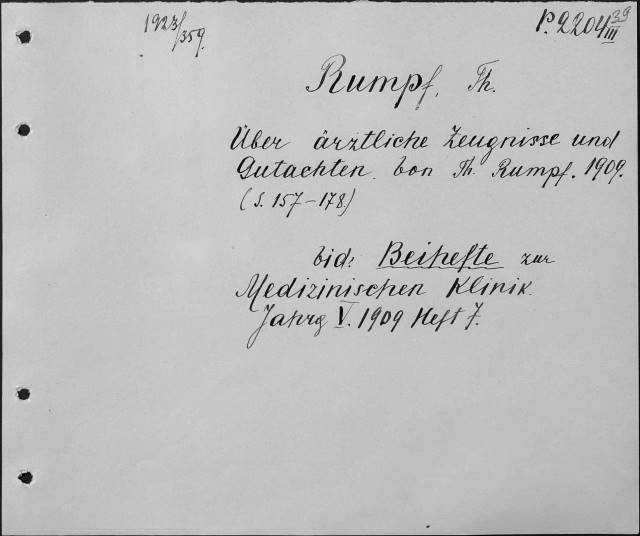 1923/359.
P.2204 39
III
Rumpf, Th.
Über ärztliche Zeugnisse und
Gutachten. von Th. Rumpf. 1909.
(S. 157-178.)
bid: Beihefte zur
Medizinischen Klinik.
Jahrg V. 1909 Heft 7.